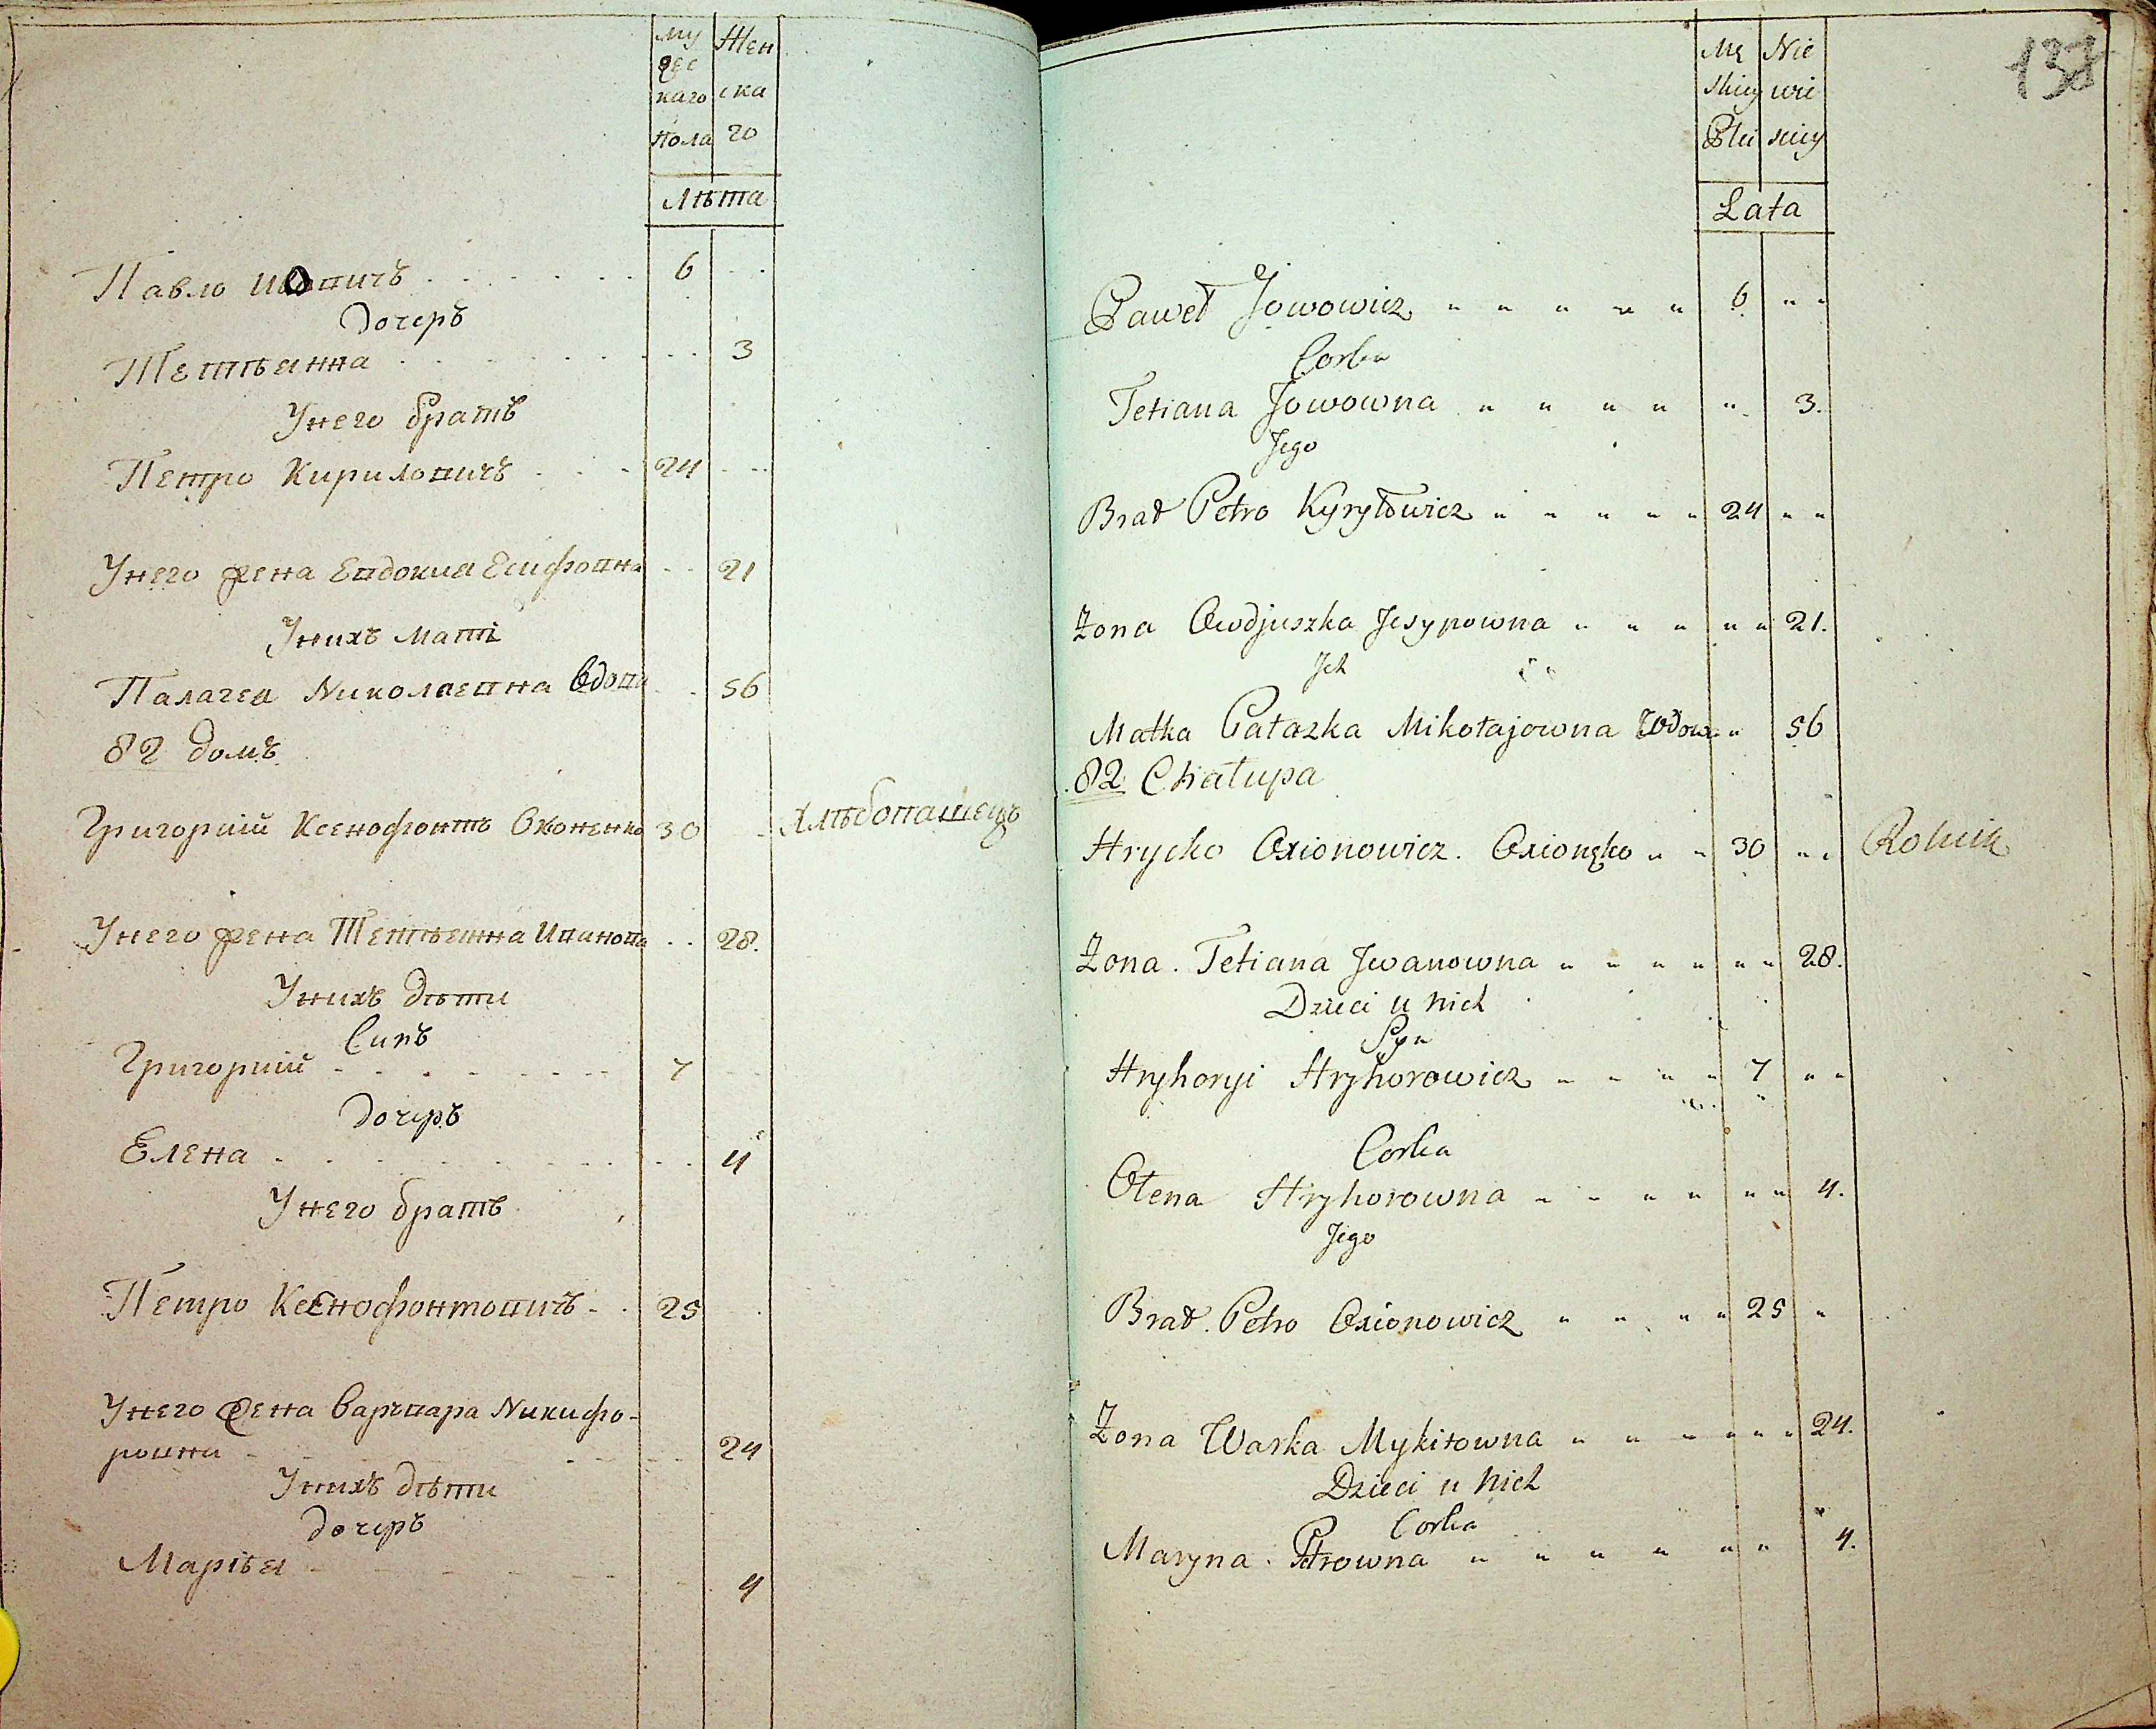 му
жес
каго
пола
Жен
ска
го
Лѣта
Павло Иовичъ 6
Дочерь
Тетѣянна 3
Унего братъ
Петро Кириловичъ 24
Унего жена Евдокиа Есифовна 21
Унихъ маті
Палагеа Николаевна вдова 56
82 домъ
Григорий Ксенофонтъ Охоненко 30 Хлѣбопашецъ
Унего жена Тетѣянна Ивановa 28.
Унихъ дѣти
Синъ
Григорий 7
Дочерь
Елена 4
Унего братъ
Петро Ксенофонтовичъ 25
Унего жена Варъвара Никифо-
ровна 24
Унихъ дѣти
дочерь
Маріѣя 4
137
Mę
skiey
Płci
Nie
wie
sciey
Lata
Paweł Jowowicz 6
Corka
Tetiana Jowowna 3.
Jego
Brat Petro Kyryłowicz 24
Żona Owdjuszka Jesypowna 21.
Jch
Matka Pałazka Mikołajowna Wdowa 56
82 Chałupa
Hrycko Oxionowicz. Oxionęko 30 Rolnik
Żona. Tetiana Jwanowna 28.
Dzieci u nich
Syn
Hryhoryi Hryhorowicz 7
Corka
Ołena Hryhorowna 4.
Jego
Brat. Petro Oxionowicz 25
Żona Warka Mykitowna 24.
Dzieci u nich
Corka
Maryna. Petrowna 4.